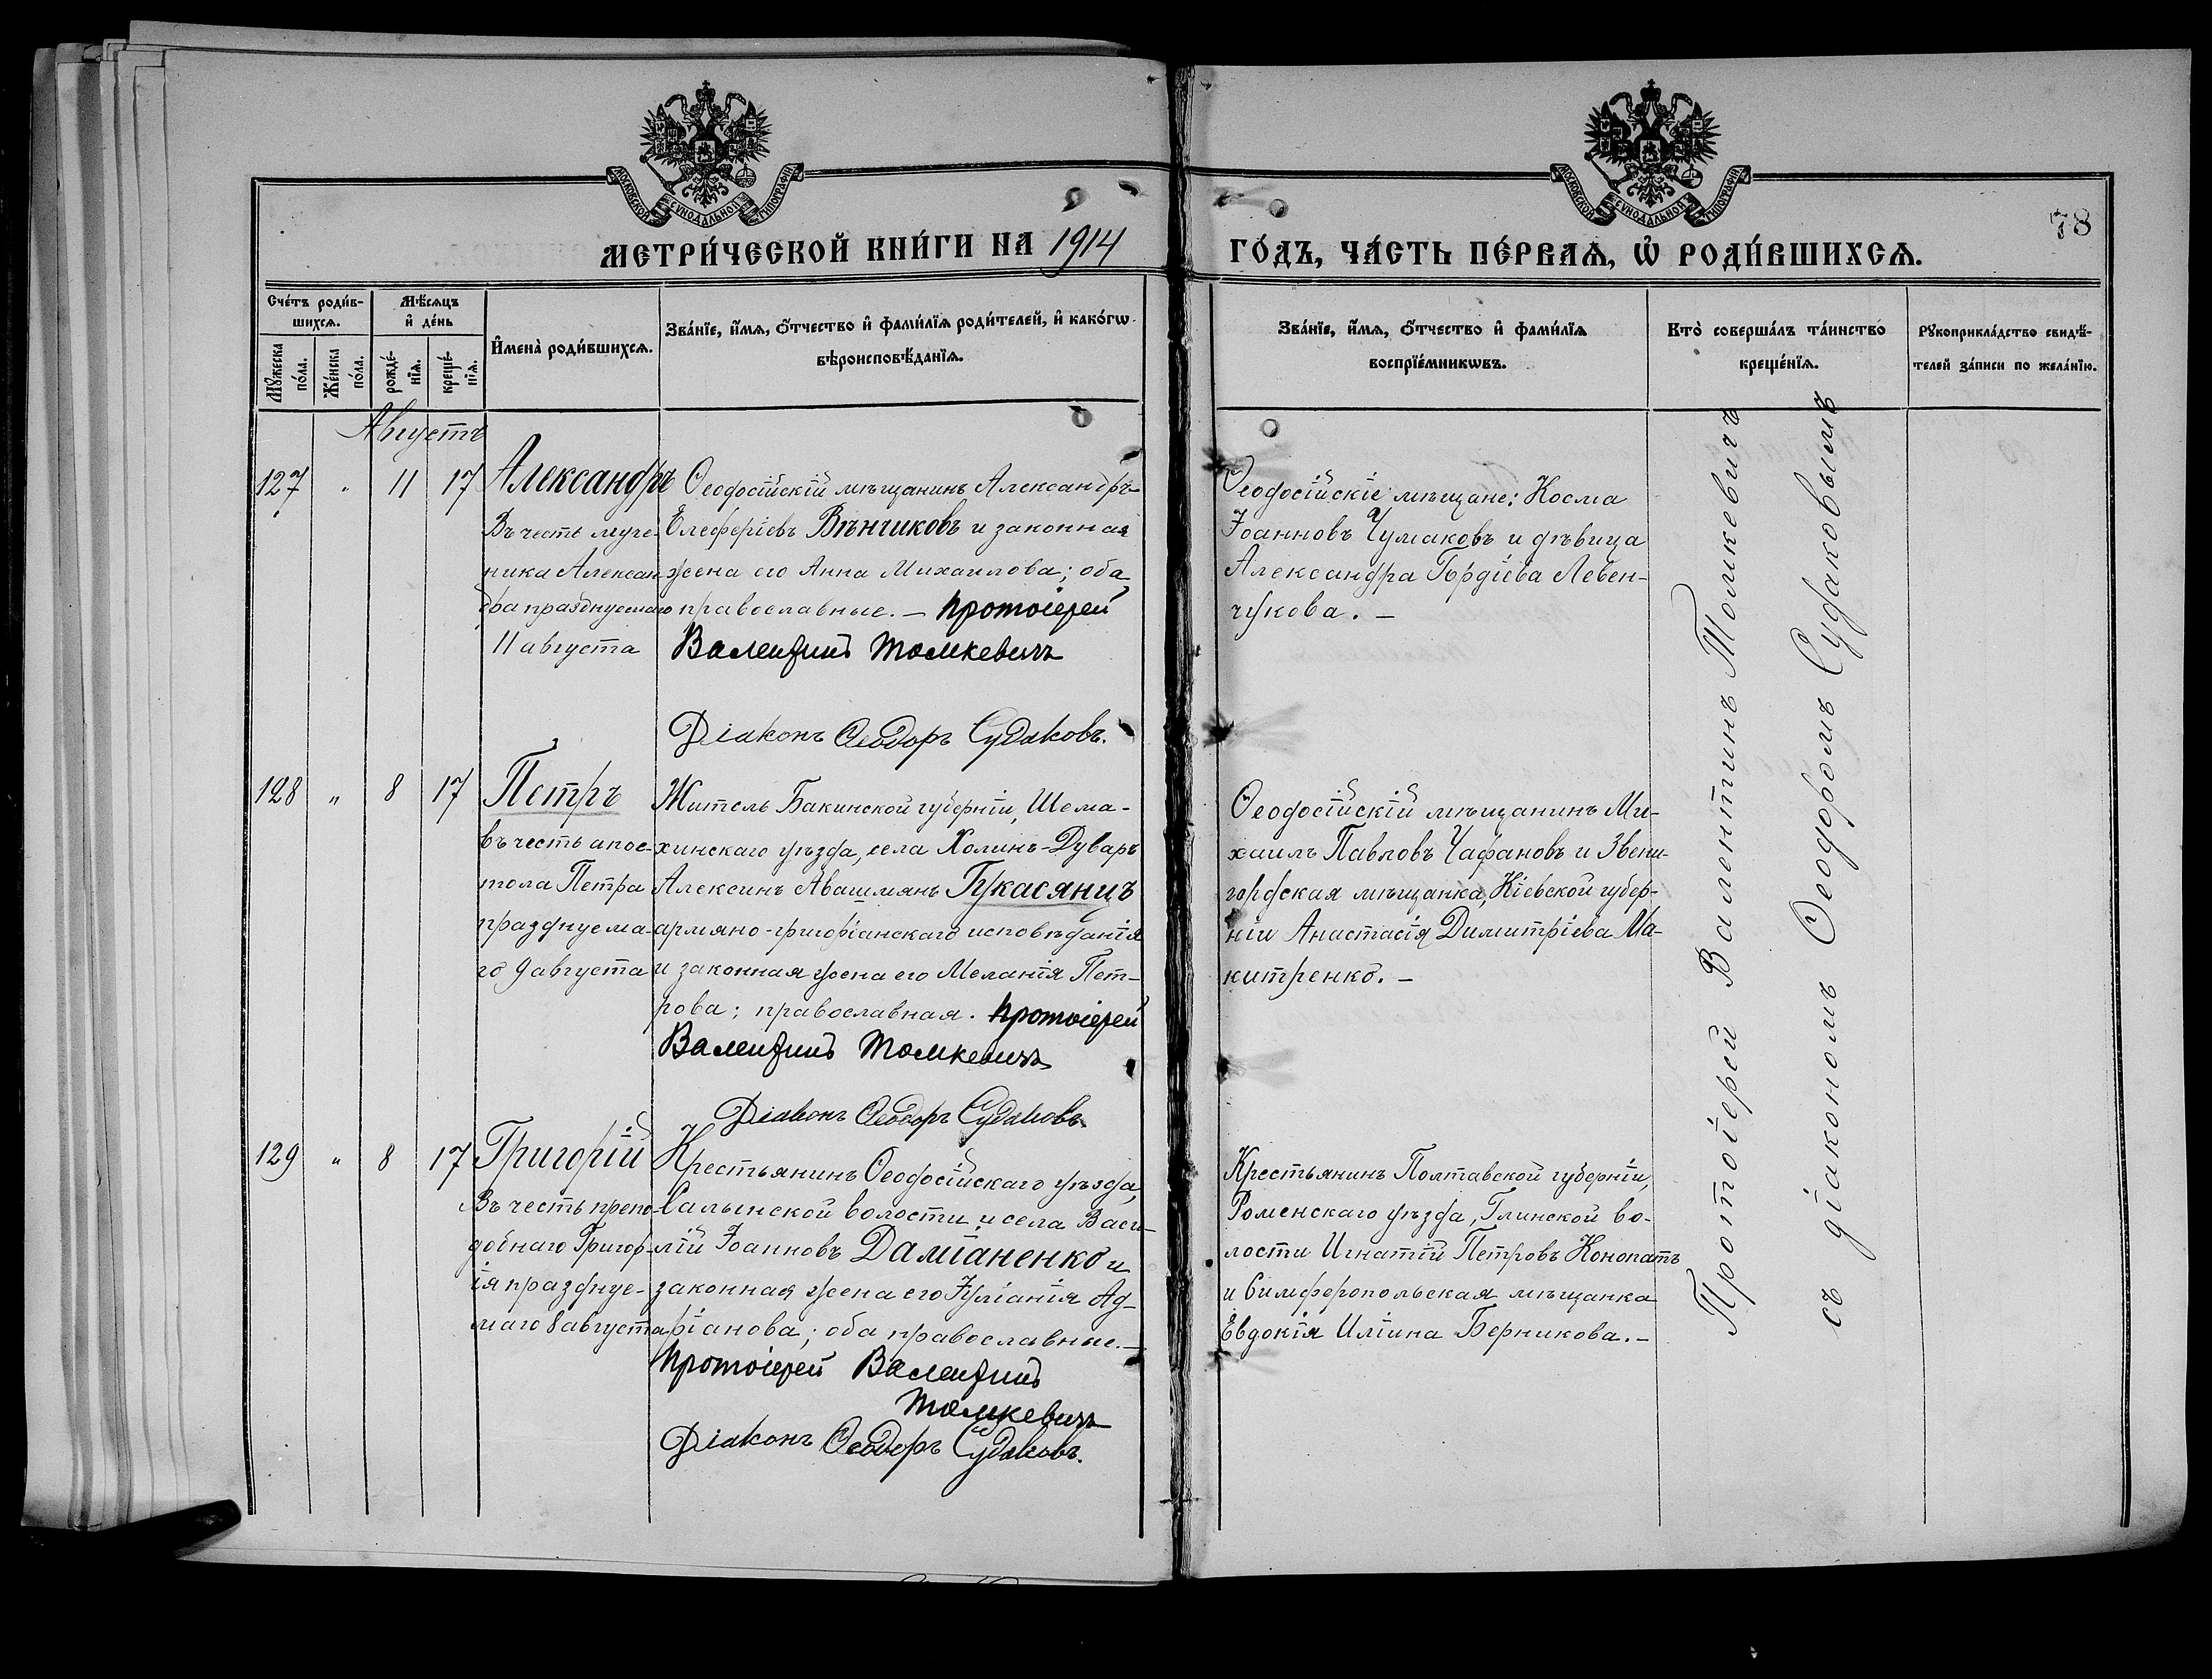 МОСКОВСКОЙ СѴНОДАЛЬНОЙ ТИПОГРАФІИ
МОСКОВСКОЙ СѴНОДАЛЬНОЙ ТИПОГРАФІИ
78
МЕТРИ́ЧЕСКОЙ КНИ́ГИ НА 1914 ГО́ДЪ, ЧА́СТЬ ПЕ́РВАѦ, Ѡ҆ РОДИ́ВШИХСѦ.
Сче́тъ роди́в-
шихсѧ.
Мꙋ́жеска
по́ла.
Же́нска
по́ла.
Мѣ́сѧцъ
и҆ де́нь
рожде́-
нїѧ.
креще́-
нїѧ.
И҆мена̀ роди́вшихсѧ.
Зва́нїе, и҆́мѧ, ѻ҆́тчество и҆ фами́лїѧ роди́телей, и҆ како́гѡ
вѣроисповѣ́данїѧ.
Зва́нїе, и҆́мѧ, ѻ҆́тчество и҆ фами́лїѧ
воспрїе́мникѡвъ.
Кто̀ соверша́лъ та́инство
креще́нїѧ.
Рꙋкоприкла́дство свидѣ́-
телей за́писи по жела́нїю.
Августъ
127 " 11 17
Александръ
Въ честь муче-
ника Алексан-
дра празднуемаго
11 августа
Ѳеодосійскій мѣщанинъ Александръ
Елеѳеріевъ Вѣнчиковъ и законная
жена его Анна Михаилова; оба
православные. – Протоіерей
Валентинъ Томкевичъ
Діаконъ Ѳеодоръ Судаковъ.
Ѳеодосійскіе мѣщане: Косма
Іоанновъ Чумаковъ и дѣвица
Александра Гордіева Левен-
чукова. –
128 " 8 17
Петръ
въ честь апос-
тола Петра
празднуема-
го 9 августа
Житель Бакинской губерніи, Шема-
хинскаго уѣзда, села Холинъ-Дуваръ
Алексинъ Авашмянъ Гукасянцъ
армяно-григоріанскаго исповѣданія
и законная жена его Меланія Пет-
рова; православная. Протоіерей
Валентинъ Томкевичъ
Діаконъ Ѳеодоръ Судаковъ.
Ѳеодосійскій мѣщанинъ Ми-
хаилъ Павловъ Чафановъ и Звени-
городская мѣщанка, Кіевской губер-
ніи Анастасія Димитріева Ма-
китренко. –
129 " 8 17
Григорій
Въ честь препо-
добнаго Григор-
ія празднуе-
маго 8 августа
Крестьянинъ Ѳеодосійскаго уѣзда,
Салынской волости и села Васи-
лій Іоанновъ Даміаненко и
законная жена его Іуліанія Ад-
ріанова; оба православные. –
Протоіерей Валентинъ
Томкевичъ
Діаконъ Ѳеодоръ Судаковъ.
Крестьянинъ Полтавской губерніи,
Роменскаго уѣзда, Глинской во-
лости Игнатій Петровъ Конопатъ
и Симферопольская мѣщанка
Евдокія Иліина Берникова. –
Протоіерей Валентинъ Томкевичъ
съ діакономъ Ѳеодоромъ Судаковымъ